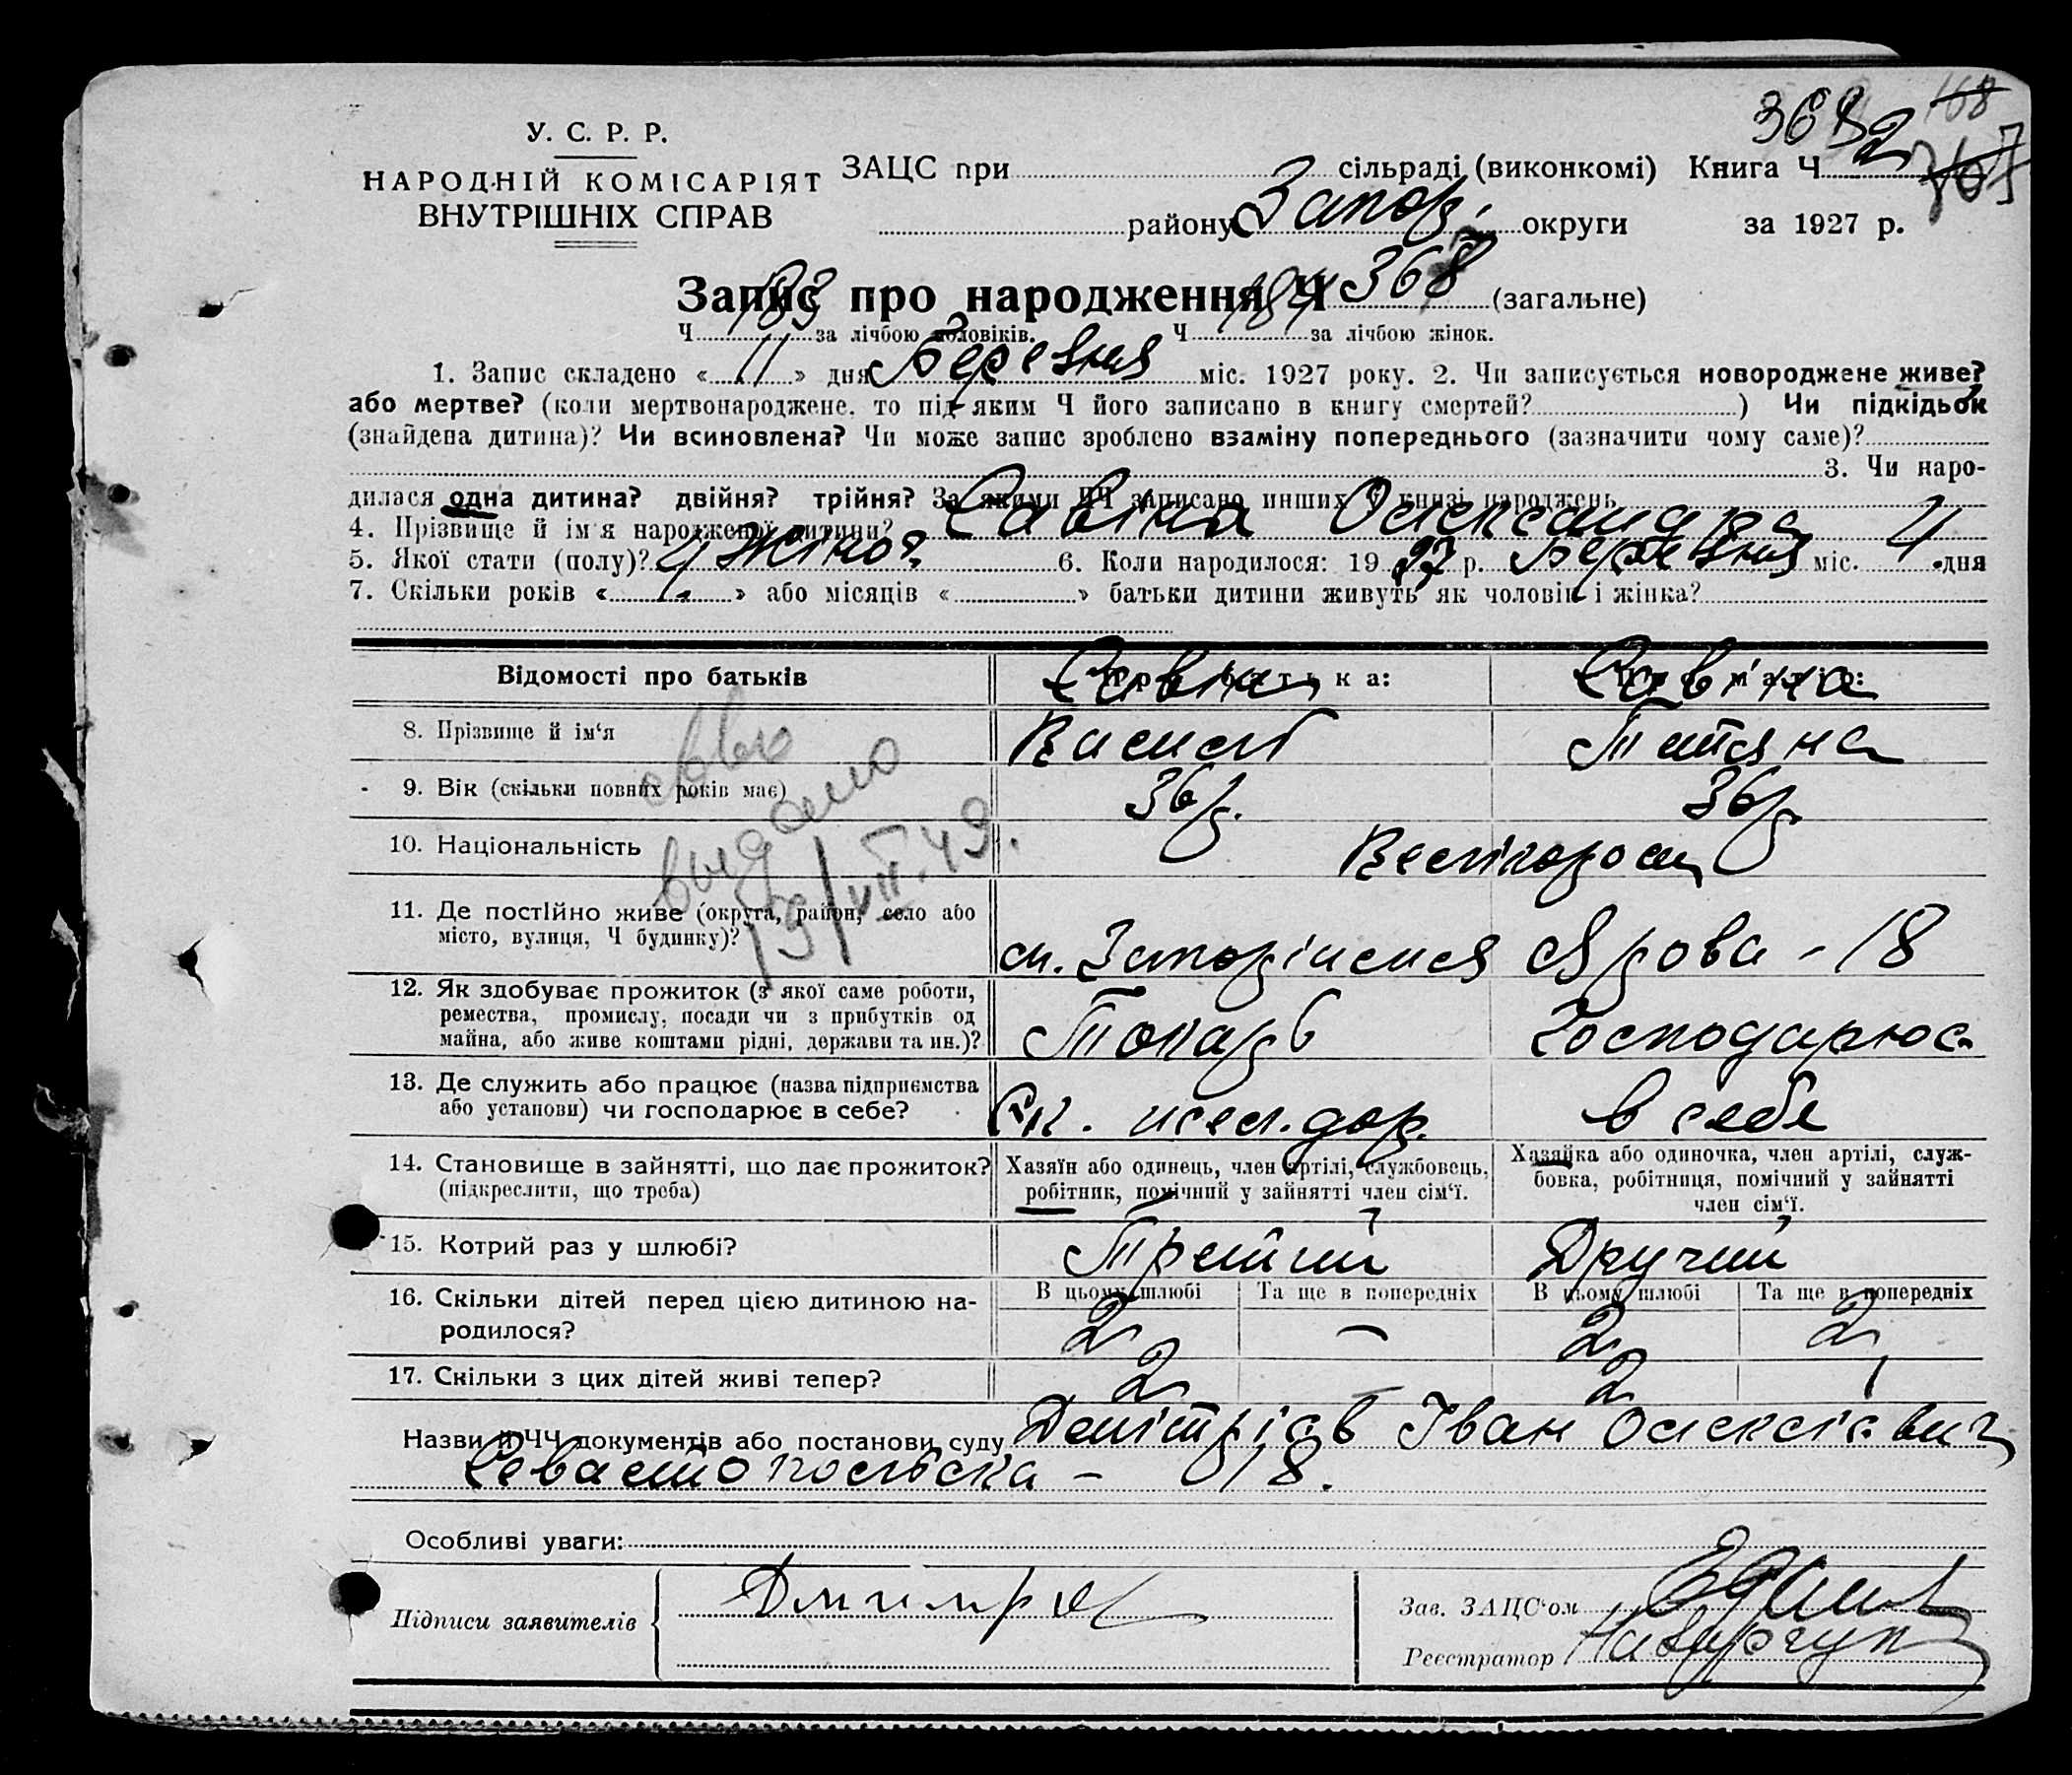 368 2 168
У. С. Р. Р.
НАРОДНІЙ КОМІСАРІЯТ
ВНУТРІШНІХ СПРАВ
ЗАЦС при сільраді (виконкомі) Книга Ч
району Запор. округи за 1927 р.
Запис про народження Ч 368 (загальне)
Ч 183 за лічбою чоловіків. Ч 184 за лічбою жінок.
1. Запис складено « 11 » дня Березня міс. 1927 року. 2. Чи записується новороджене живе?
або мертве? (коли мертвонароджене, то під яким Ч його записано в книгу смертей? ) Чи підкідьок
(знайдена дитина)? Чи всиновлена? Чи може запис зроблено взаміну попереднього (зазначити чому саме)?
3. Чи наро-
дилася одна дитина? двійня? трійня? За якими ЧЧ записано инших у книзі народжень
4. Прізвище й ім'я народженої дитини? Савіна Олександра
5. Якої стати (полу)? Жіноч 6. Коли народилося: 1927 р. Березня міс. 4 дня
7. Скільки років « 4 » або місяців « » батьки дитини живуть як чоловік і жінка?
Відомості про батьків Про батька: Про матір:
Савин Савіна
8. Прізвище й ім'я Василь Тетяна
9. Вік (скільки повних років має) 36 р. 36 р.
10. Національність Велікорос
11. Де постійно живе (округа, район, село або
місто, вулиця, Ч будинку)? м. Запоріжжя Ярова - 18
12. Як здобуває прожиток (з якої саме роботи,
ремества, промислу, посади чи з прибутків од
майна, або живе коштами рідні, держави та ин.)? Токарь Господарює
13. Де служить або працює (назва підприємства
або установи) чи господарює в себе? Ек. жел. дор. в себе
14. Становище в зайнятті, що дає прожиток?
(підкреслити, що треба)
Хазяїн або одинець, член артілі, службовець,
робітник, помічний у зайнятті член сім'ї.
Хазяйка або одиночка, член артілі, служ-
бовка, робітниця, помічний у зайнятті
член сім'ї.
15. Котрий раз у шлюбі? Третій Другий
16. Скільки дітей перед цією дитиною на-
родилося?
В цьому шлюбі Та ще в попередніх В цьому шлюбі Та ще в попередніх
2 – 2 2
17. Скільки з цих дітей живі тепер? 2 2 1
выдано
19/VII. 49.
Назви й ЧЧ документів або постанови суду Демітріев Іван Олексієвич
Севастопольска – 18.
Особливі уваги:
Підписи заявителів Дмитри
Зав. ЗАЦС'ом
Реєстратор